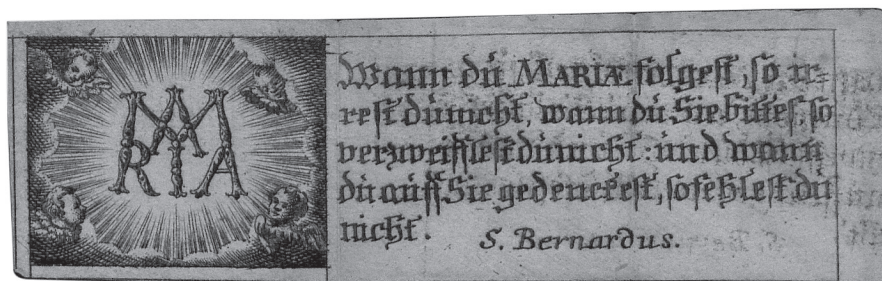 MARIA
Wann dü MARIÆ folgest, so ir=
rest dü nicht, wann dü Sie bittes, so
verzweifflest dü nicht: ünd wann
dü aüff Sie gedenckest, so fehlest dü
nicht.
S. Bernardus.